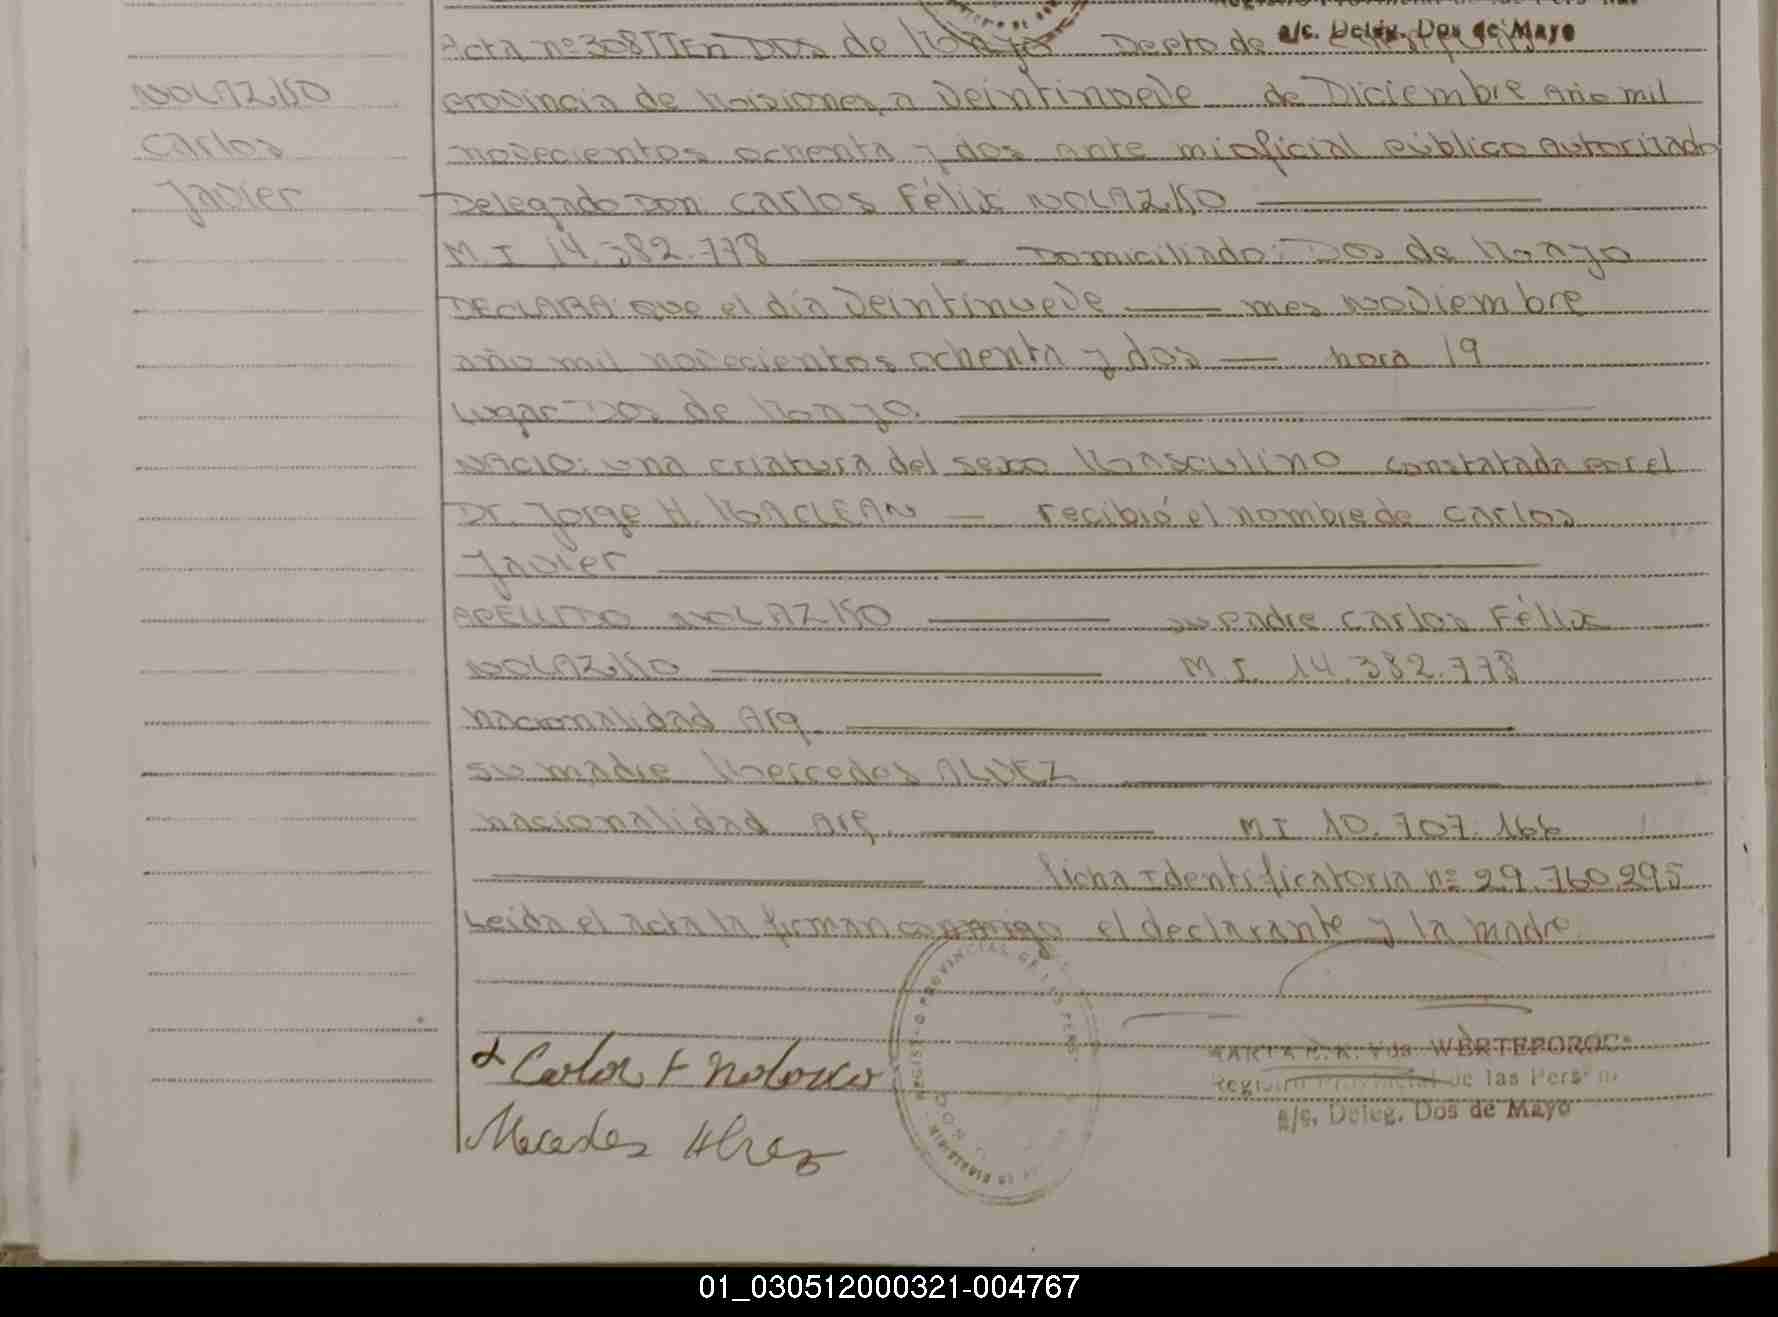 a/c. Deleg. Dos de Mayo
Acta nº 308 TI En Dos de Mayo Depto de
NOLAZKO
provincia de Misiones, a Veintinueve de Diciembre Año mil
Carlos
novecientos ochenta y dos ante mi oficial público autorizado
Javier
Delegado Don Carlos Félix NOLAZKO
M I 14.382.778 Domiciliado: Dos de Mayo
DECLARA: que el día Veintinueve mes Noviembre
año mil novecientos ochenta y dos hora 19
lugar Dos de Mayo.
NACIO: una criatura del sexo Masculino constatada por el
Dr. Jorge H. MACLEAN recibió el nombre de Carlos
Javier
APELLIDO NOLAZKO su padre Carlos Félix
NOLAZKO M I. 14.382.778
nacionalidad Arg.
su madre Mercedes ALVEZ
nacionalidad Arg. M I 10.707.166
ficha Identificatoria nº 29.760.295
Leída el acta la firman conmigo el declarante y la madre
REGISTRO PROVINCIAL DE LAS PERS.
Carlos F Nolazco
Vda. WERTEPOROC
Registro Provincial de las Person.
a/c. Deleg. Dos de Mayo
Mercedes Alvez
01_030512000321-004767